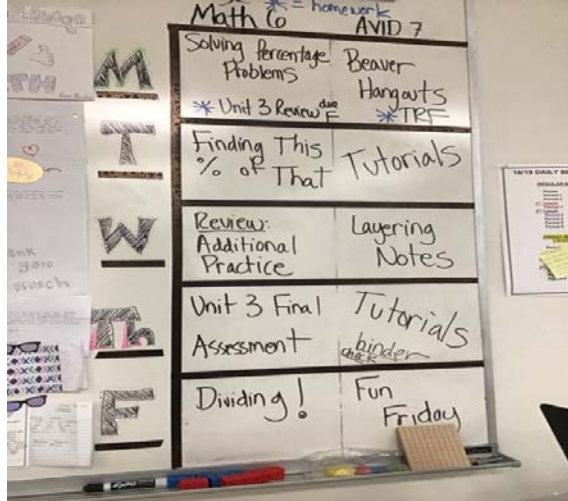 * = homework
Math 6 AVID 7
M
Solving Percentage
Problems
* Unit 3 Review due F
Beaver
Hangouts
* TRF
T
Finding This
% of That
Tutorials
W
Review:
Additional
Practice
Layering
Notes
Th
Unit 3 Final
Assessment
Tutorials
binder
check
F
Dividing!
Fun
Friday
18/19 DAILY
EXPO